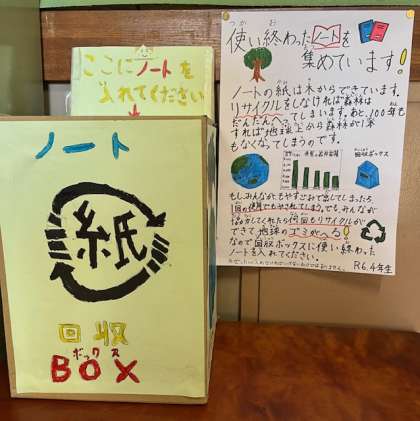 ここにノートを
入れてください
ノート
紙
回収
ボックス
BOX
使い終わったノートを
集めています!
ノートの紙は木からできています。
リサイクルをしなければ森林は
だんだんへってしまいます。あと、100年も
すれば地球上から森林が1本
もなくなってしまうのです。
回収ボックス
もし、みんなが
1回の使用でもやされてしまう。でも、みんなが
協力してくれたら何回もリサイクルが
できて地球のゴミがへる!
なので回収ボックスに使い終わった
ノートを入れてください。
R6.4年生